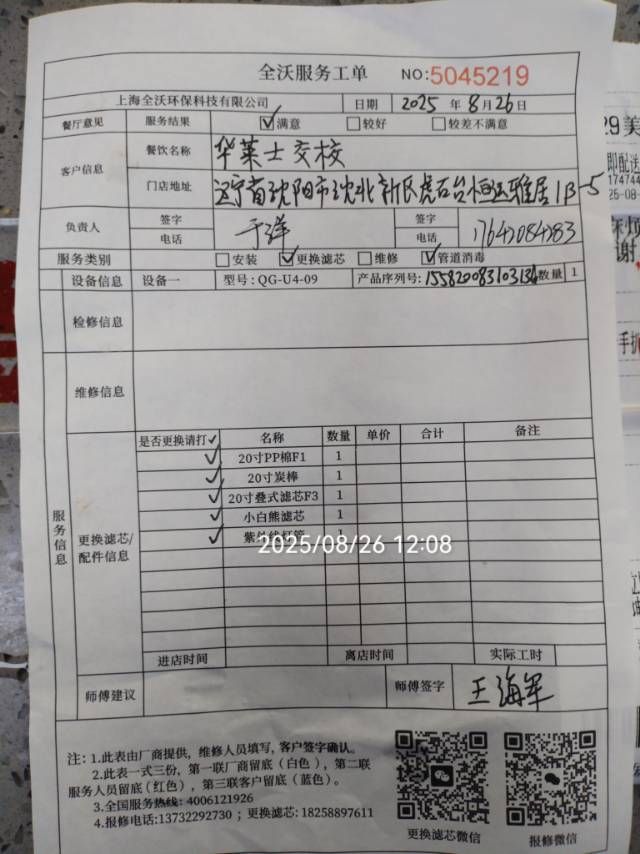 全沃服务工单 NO:5045219
上海全沃环保科技有限公司 日期 2025 年 8 月 26 日
餐厅意见 服务结果 ☑满意 □较好 □较差不满意
客户信息 餐饮名称 华莱士交校
门店地址 辽宁省沈阳市沈北新区虎石台恒达雅居1B-5
负责人 签字 于洋 签字
电话 电话 17642084283
服务类别 □安装 ☑更换滤芯 □维修 ☑管道消毒
设备信息 设备一 型号:QG-U4-09 产品序列号: 数量 1
检修信息
维修信息
服务信息
更换滤芯/配件信息
是否更换请打✓ 名称 数量 单价 合计 备注
✓ 20寸PP棉F1 1
✓ 20寸炭棒 1
✓ 20寸叠式滤芯F3 1
✓ 小白熊滤芯 1
✓ 紫外线灯管 1
2025/08/26 12:08
进店时间 离店时间 实际工时
师傅建议 师傅签字 王海军
注: 1.此表由厂商提供，维修人员填写，客户签字确认。
2.此表一式三份，第一联厂商留底（白色），第二联
服务人员留底（红色），第三联客户留底（蓝色）。
3.全国服务热线: 4006121926
4.报修电话:13732292730 ；更换滤芯: 18258897611
更换滤芯微信 报修微信